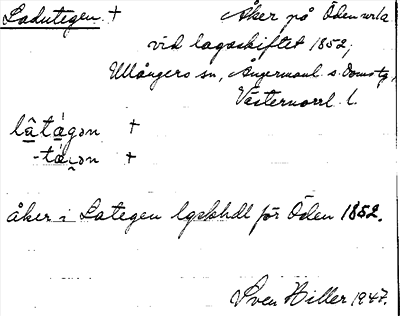 Ladutegen. + Åker på Öden
vid lagaskiftet 1852,
Ullångers sn, Ångermanl. s. domsg,
Västernorrl. l.
lâtágən +
-tá̯ən +
åker i Lategen lgskhdl för Öden 1852.
Sven Hiller 1947.